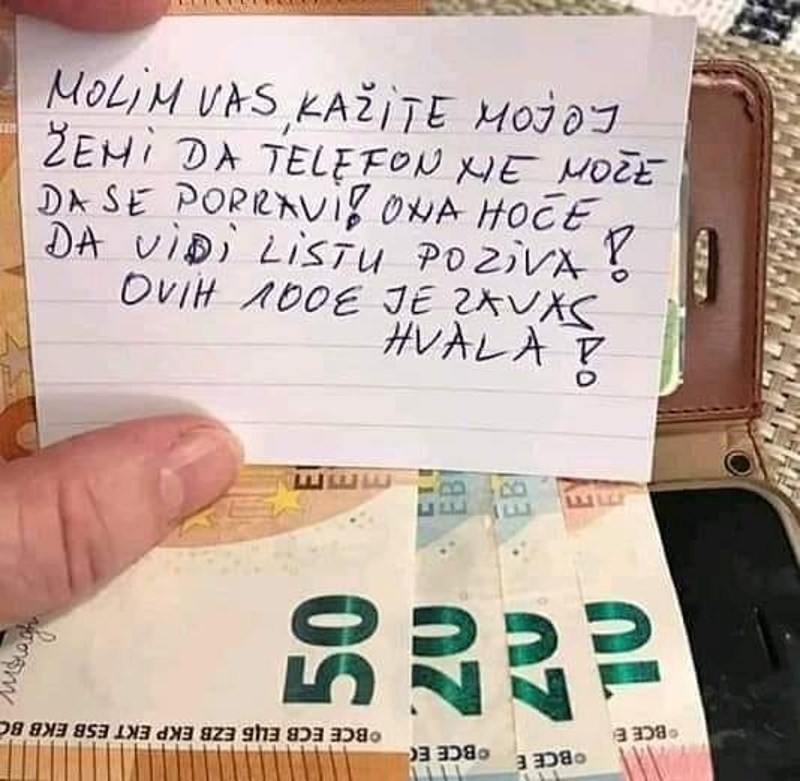 MOLIM VAS, KAŽITE MOJOJ
ŽEMI DA TELEFON NE MOŽE
DA SE PORRAVI! ONA HOĆE
DA VIDI LISTU POZIVA!
OVIH 100€ JE ZA VAS
HVALA!
50
20
20
10
©BCE ECB ЕЦБ EZB EKP EKT EKB BCE EBC
©BCE
©BCE E
©BCE E